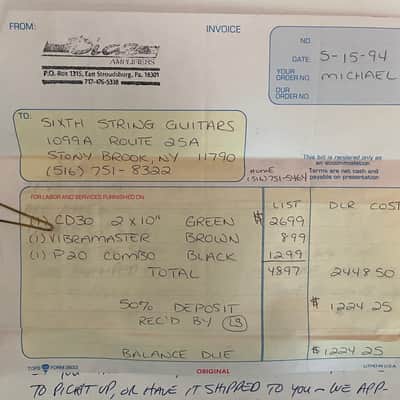 FROM:
INVOICE
Diaz
AMPLIFIERS
P.O. Box 1315, East Stroudsburg, Pa. 18301
717-476-5338
NO.
DATE: 5-15-94
YOUR ORDER NO. MICHAEL
OUR ORDER NO.
TO:
SIXTH STRING GUITARS
1099A ROUTE 25A
STONY BROOK, NY 11790
(516) 751-8322
HOME
(516) 751-5464
This bill is rendered only as
an accommodation
Terms are net cash and
payable on presentation
FOR LABOR AND SERVICES FURNISHED ON
LIST DLR COST
(1) CD30 2 x 10" GREEN $ 2699
(1) VIBRAMASTER BROWN 899
(1) P20 COMBO BLACK 1299
TOTAL 4897 2448 50
50% DEPOSIT $ 1224 25
REC'D BY LS
BALANCE DUE $ 1224 25
TOPS FORM 3822 LITHO IN U.S.A.
ORIGINAL
TO PICK IT UP, OR HAVE IT SHIPPED TO YOU - WE APP-